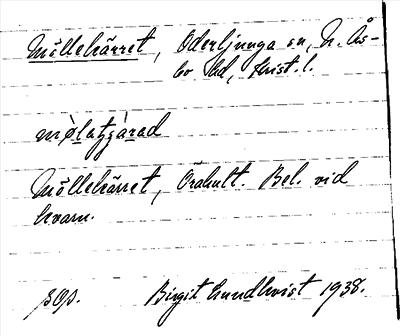 Möllekärret, Oderljunga sn, N. Ås-
bo hd, Krist. l.
Möllekärret, Örahult. Bel. vid
kvarn.
Birgit Lundkvist 1938.